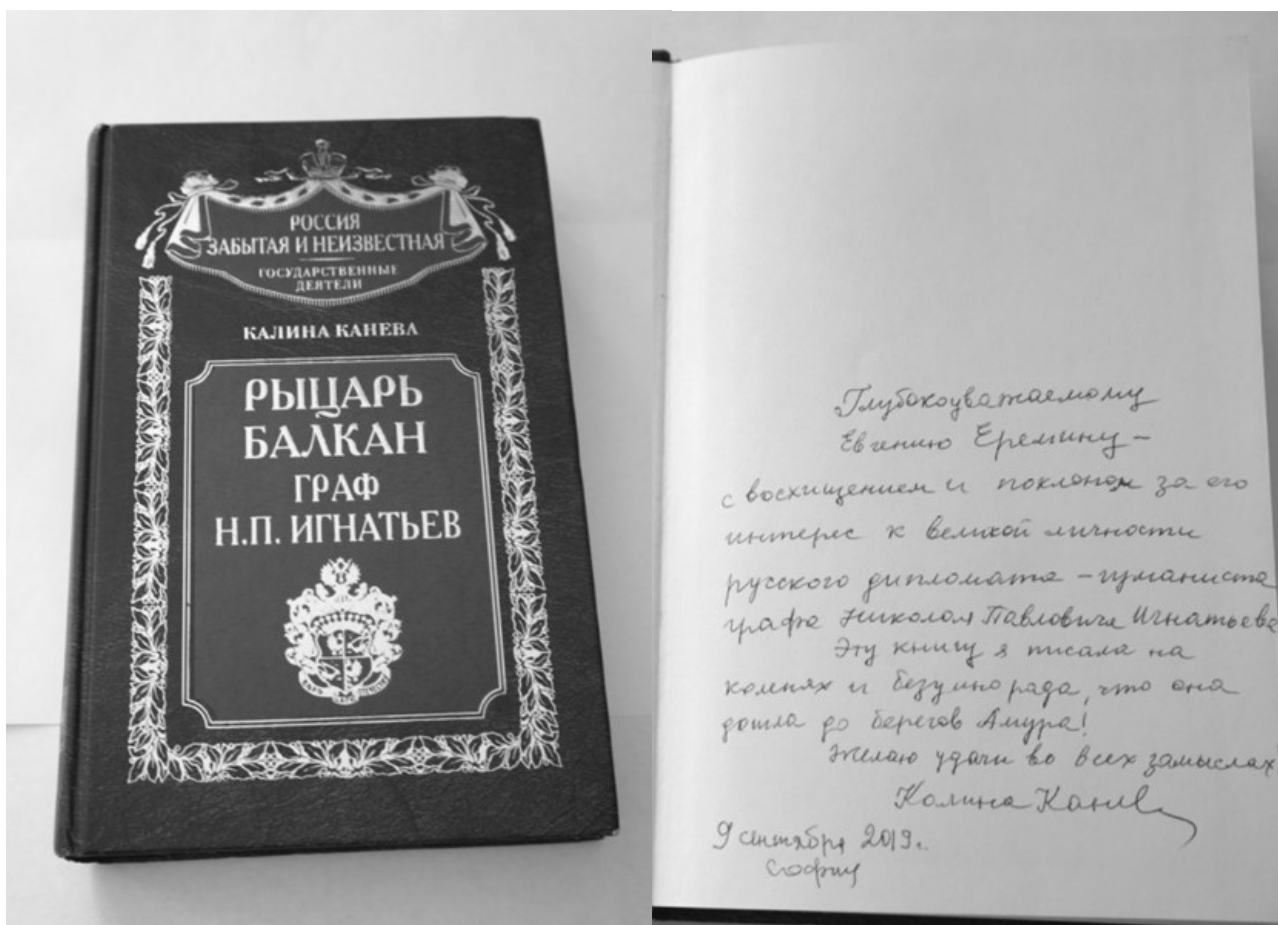 РОССИЯ
ЗАБЫТАЯ И НЕИЗВЕСТНАЯ
ГОСУДАРСТВЕННЫЕ
ДЕЯТЕЛИ
КАЛИНА КАНЕВА
РЫЦАРЬ
БАЛКАН
ГРАФ
Н.П. ИГНАТЬЕВ
Глубокоуважаемому
Евгению Еремину –
с восхищением и поклоном за его
интерес к великой личности
русского дипломата – гуманиста
графа Николая Павловича Игнатьева
Эту книгу я писала на
коленях и безумно рада, что она
дошла до берегов Амура!
Желаю удачи во всех замыслах
Калина Канева
9 сентября 2019г.
София